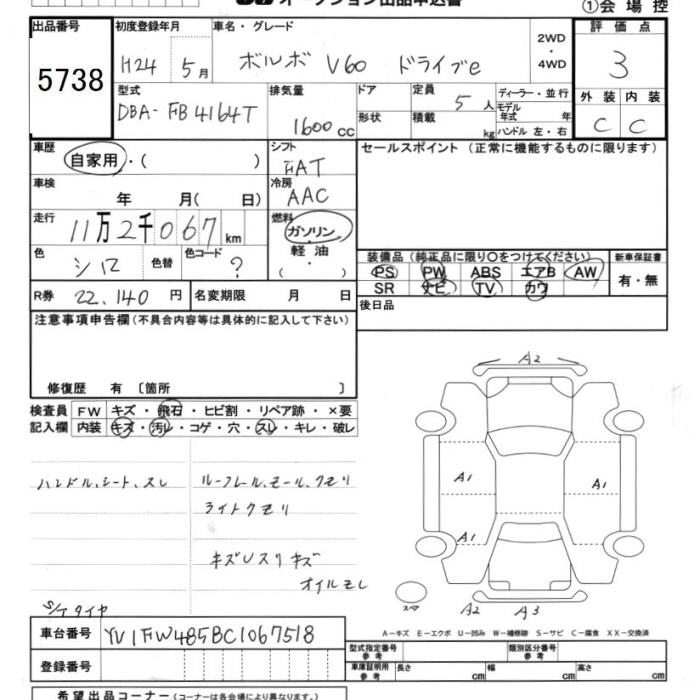 オークション出品申込書
①会場控
出品番号 5738
初度登録年月 H24 5月
車名・グレード ボルボ V60 ドライブe
2WD・4WD
評価点 3
型式 DBA-FB4164T
排気量 1600cc
ドア 形状
定員 5人
積載 kg
ディーラー・並行
モデル年式 年
ハンドル 左・右
外装 C 内装 C
車歴 自家用・( )
シフト FAT
セールスポイント (正常に機能するものに限ります)
車検 年 月( 日)
冷房 AAC
走行 11万2千067km
燃料 ガソリン・軽油・( )
色 シロ 色替 色コード ?
装備品 (純正品に限り○をつけてください)
PS PW ABS エアB AW
SR ナビ TV カワ
新車保証書 有・無
R券 22,140円
名変期限 月 日
後日品
注意事項申告欄 (不具合内容等は具体的に記入して下さい)
修復歴 有 〔箇所 〕
検査員記入欄
FW キズ・飛石・ヒビ割・リペア跡・×要
内装 キズ・汚レ・コゲ・穴・スレ・キレ・破レ
ハンドル、シート、スレ
ルーフレール、モール、クモリ
ライトクモリ
キズUスリキズ
オイルモレ
S/Tタイヤ
A2
A1 A1
A1
スペア A2 A3
A−キズ E−エクボ U−凹み W−補修跡 S−サビ C−腐食 XX−交換済
車台番号 YV1FW485BC1067518
登録番号
型式指定番号 参考
類別区分番号 参考
車庫証明用 参考 長さ cm 幅 cm 高さ cm
希望出品コーナー (コーナーは各会場により異なります。)